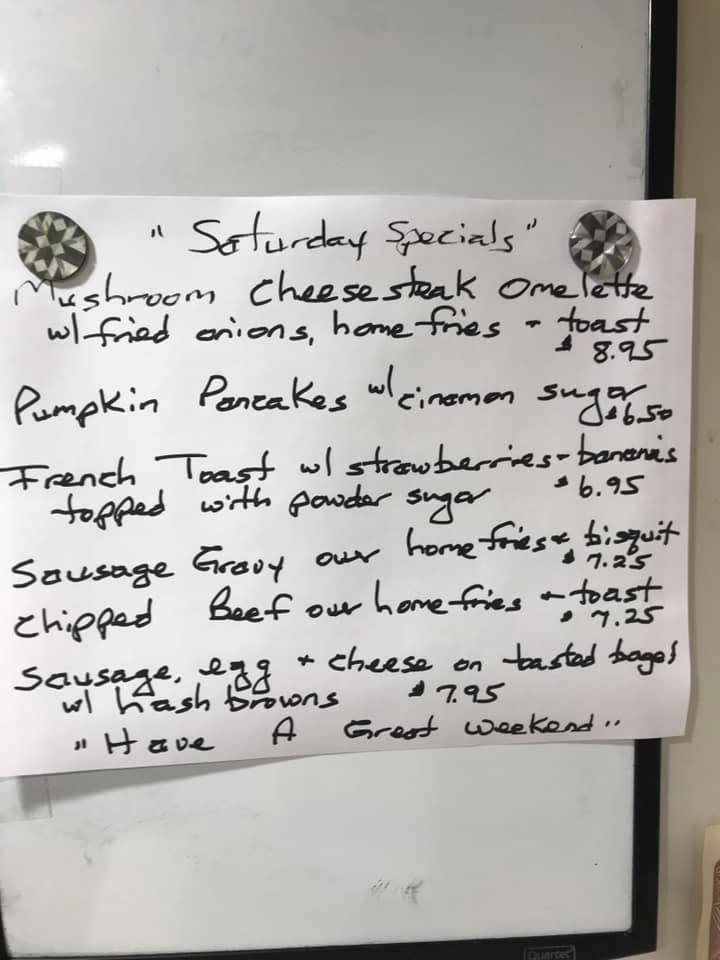 "Saturday Specials"
Mushroom Cheesesteak Omelette
w/ fried onions, home fries + toast
$ 8.95
Pumpkin Pancakes w/ cinamon sugar
$6.50
French Toast w/ strawberries + banana's
topped with powder sugar $6.95
Sausage Gravy over home fries + bisquit
$ 7.25
Chipped Beef over home fries + toast
$ 7.25
Sausage, egg + cheese on toasted bagel
w/ hash browns $7.95
"Have A Great Weekend"
Quartet